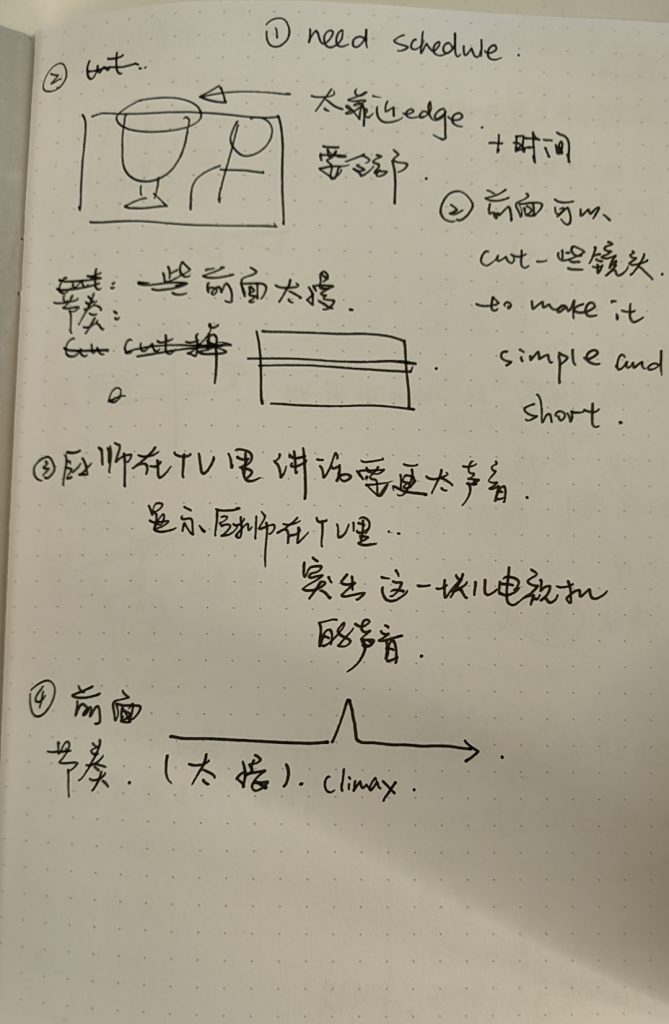 ① need schedule.
② cut..
太靠近edge.
要全部.
+时间
② 前面可以
cut一些镜头.
to make it
simple and
short.
cut: 一些 前面太慢.
节奏:
cut 掉
③ 厨师在TV里 讲话需更大声音.
显示厨师在TV里..
突出 这一块儿电视机
的声音.
④ 前面
节奏. (太慢). climax.